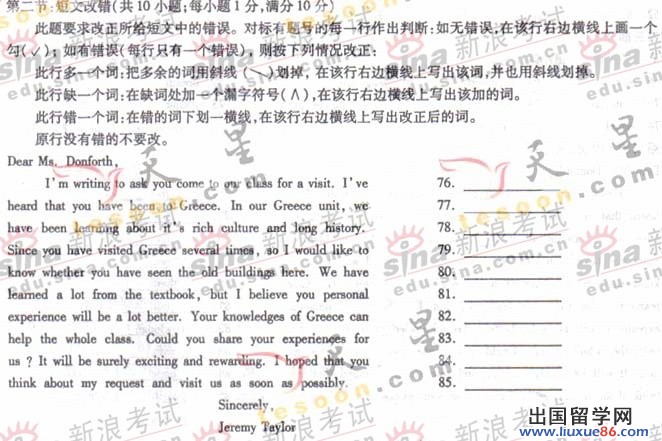 第二节:短文改错(共10小题;每小题1分,满分10分)
此题要求改正所给短文中的错误。对标有题号的每一行作出判断:如无错误,在该行右边横线上画一个
勾(✓);如有错误(每行只有一个错误),则按下列情况改正:
此行多一个词:把多余的词用斜线(\)划掉,在该行右边横线上写出该词,并也用斜线划掉。
此行缺一个词:在缺词处加一个漏字符号(∧),在该行右边横线上写出该加的词。
此行错一个词:在错的词下划一横线,在该行右边横线上写出改正后的词。
原行没有错的不要改。
Dear Ms. Donforth,
I'm writing to ask you come to our class for a visit. I've 76.
heard that you have been to Greece. In our Greece unit, we 77.
have been learning about it's rich culture and long history. 78.
Since you have visited Greece several times, so I would like to 79.
know whether you have seen the old buildings here. We have 80.
learned a lot from the textbook, but I believe you personal 81.
experience will be a lot better. Your knowledges of Greece can 82.
help the whole class. Could you share your experiences for 83.
us ? It will be surely exciting and rewarding. I hoped that you 84.
think about my request and visit us as soon as possibly. 85.
Sincerely,
Jeremy Taylor
天星
Tesoon.com
sina 新浪考试
edu.sina.com.cn
出国留学网
www.liuxue86.com